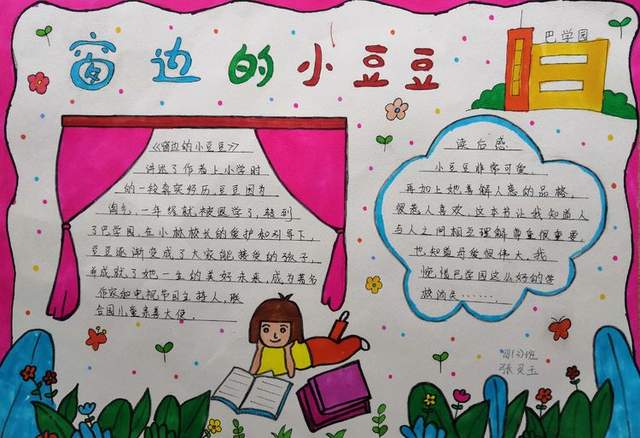 窗边的小豆豆
巴学园
《窗边的小豆豆》
讲述了作者上小学时
的一段真实经历,豆豆因为
淘气,一年级就被退学了,转到
了巴学园,在小林校长的爱护和引导下,
豆豆逐渐变成了大家能接受的孩子,
并成就了她一生的美好未来,成为著名
作家和电视节目主持人,联
合国儿童亲善大使。
读后感
小豆豆非常可爱,
再加上她善解人意的品格,
很惹人喜欢,这本书让我知道人
与人之间相互理解尊重很重要,
也知道母爱很伟大,我
惋惜巴学园这么好的学
校消失……